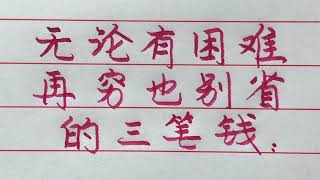 无论有困难
再穷也别省
的三笔钱：